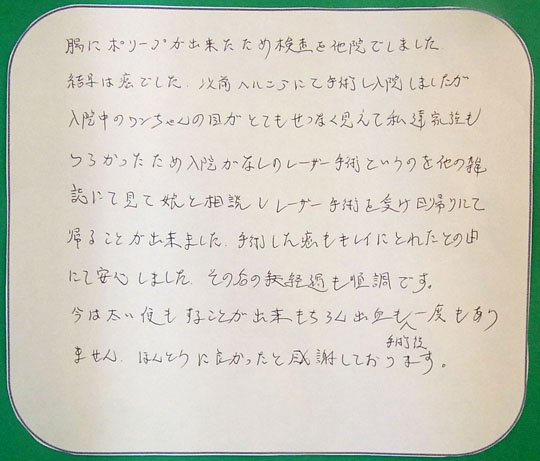 腸にポリープが出来たため検査を他院でしました。
結果は癌でした。以前ヘルニアにて手術し入院しましたが
入院中のワンちゃんの目がとてもせつなく見えて私達家族も
つらかったため入院がなしのレーザー手術というのを他の雑
誌にて見て娘と相談しレーザー手術を受け日帰りにて
帰ることが出来ました。手術した癌もキレイにとれたとの由
にて安心しました。その后の経過も順調です。
今は太い便もすることが出来もちろん出血も一度もあり
手術後
ません。ほんとうに良かったと感謝しております。